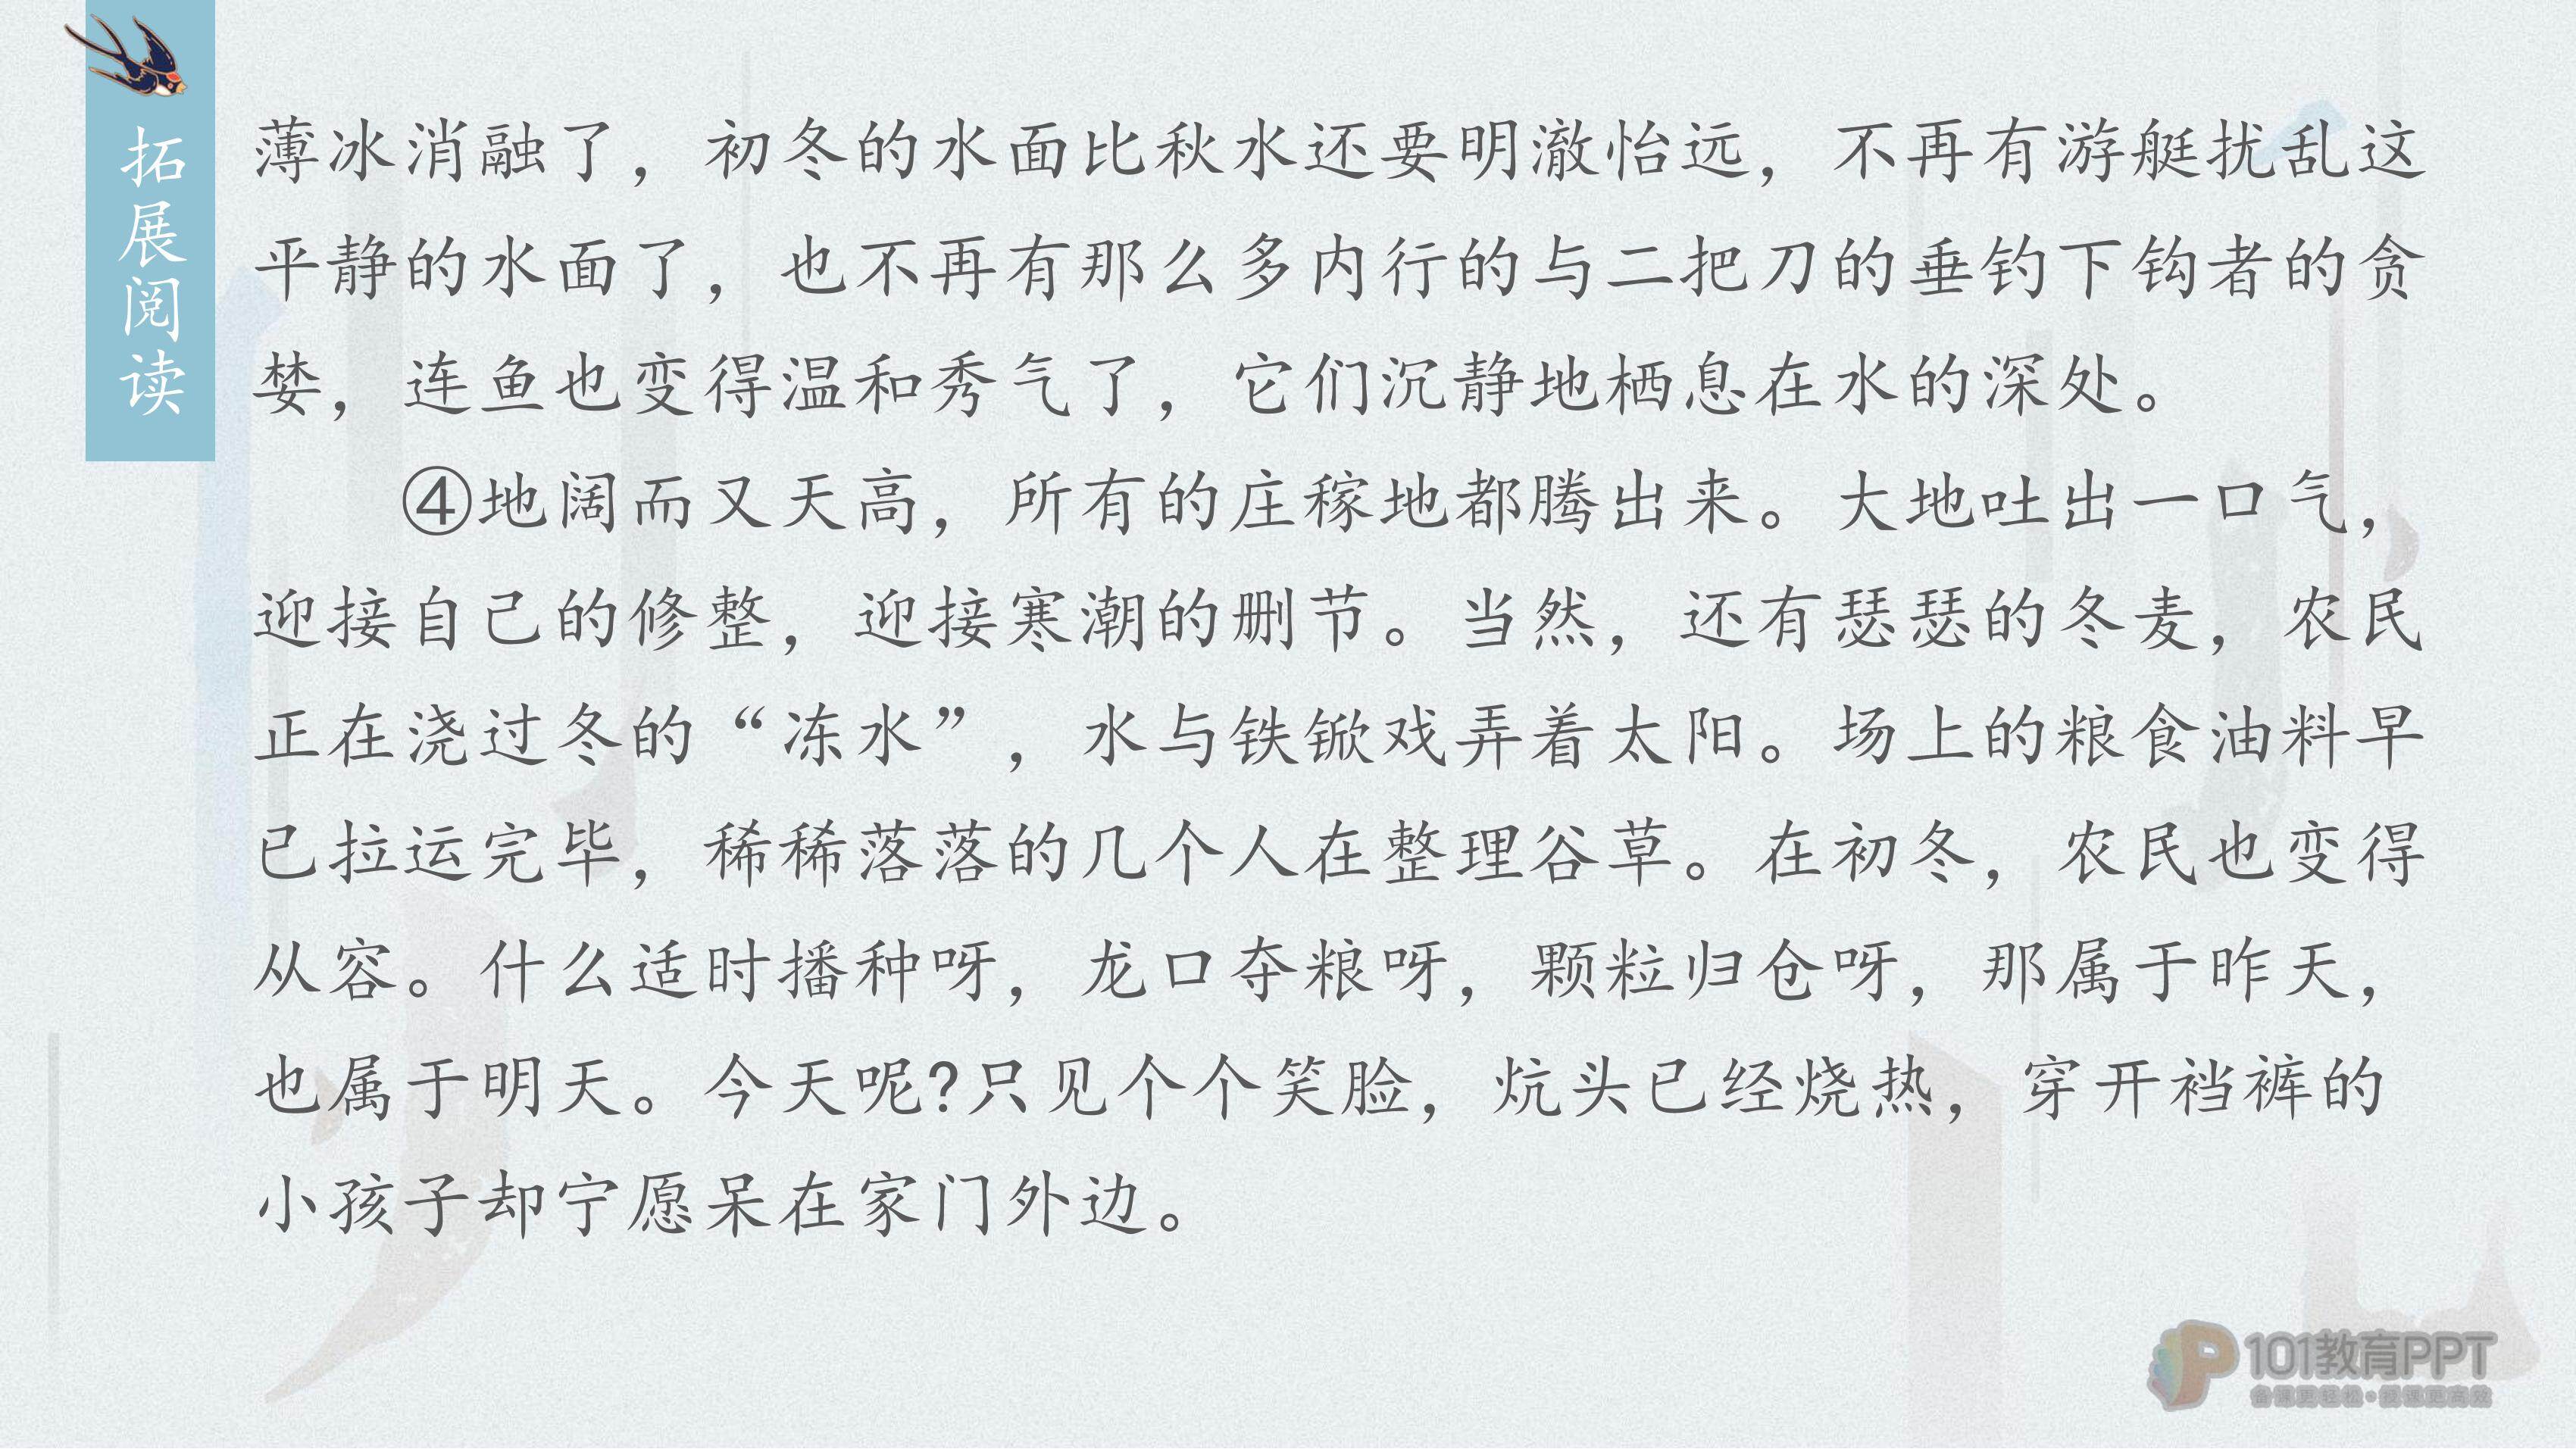 拓展阅读
薄冰消融了，初冬的水面比秋水还要明澈怡远，不再有游艇扰乱这
平静的水面了，也不再有那么多内行的与二把刀的垂钓下钩者的贪
婪，连鱼也变得温和秀气了，它们沉静地栖息在水的深处。
④地阔而又天高，所有的庄稼地都腾出来。大地吐出一口气，
迎接自己的修整，迎接寒潮的删节。当然，还有瑟瑟的冬麦，农民
正在浇过冬的“冻水”，水与铁锨戏弄着太阳。场上的粮食油料早
已拉运完毕，稀稀落落的几个人在整理谷草。在初冬，农民也变得
从容。什么适时播种呀，龙口夺粮呀，颗粒归仓呀，那属于昨天，
也属于明天。今天呢?只见个个笑脸，炕头已经烧热，穿开裆裤的
小孩子却宁愿呆在家门外边。
101教育PPT
备课更轻松·授课更高效